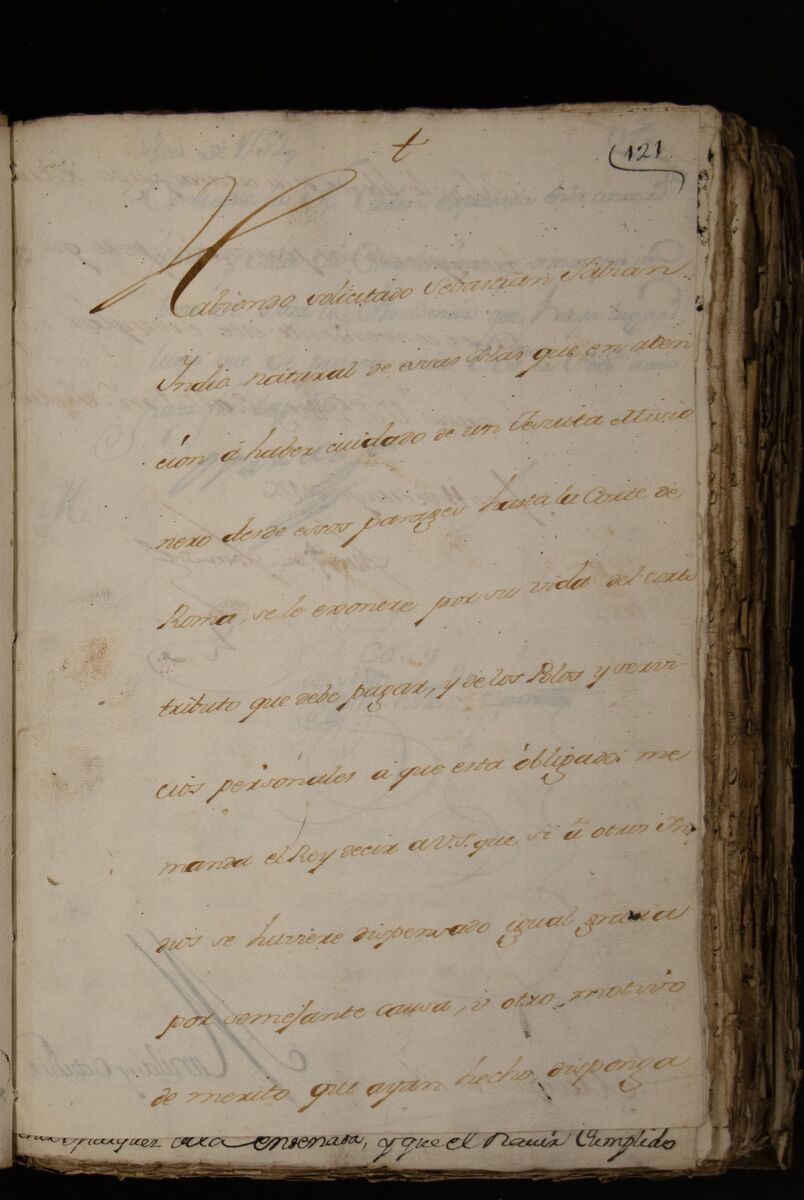 †
121
Habiendo solicitado Sebastian Fabian
Yndio natural de essas Yslas que en aten
cion á haber cuidado de un Jesuita Missio
nero desde essos parages hasta la Corte de
Roma, se le exonere por su vida del corto
tributo que debe pagar, y de los Polos y servi-
cios personales a que esta óbligado: me
manda el Rey decir a V.S. que si â otros Yn
dios se huviere dispensado igual gracia
por semejante causa, ù otro motivo
de merito que ayan hecho, disponga
Marquez de la Ensenada, y que el Navio Cumplido